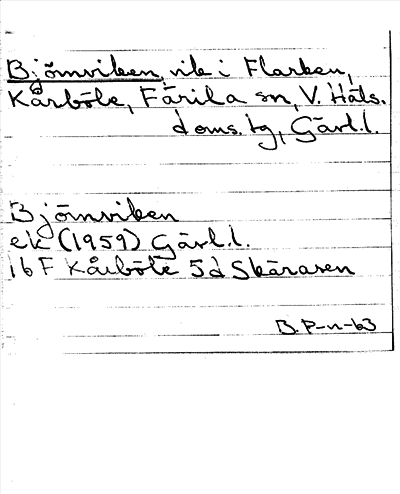 Björnviken, vik i Flarken,
Kårböle, Färila sn, V. Häls.
doms. tg, Gävl. l.
Björnviken
ek (1959) Gävl. l.
16 F Kårböle 5d Skäråsen
B. P-n-63